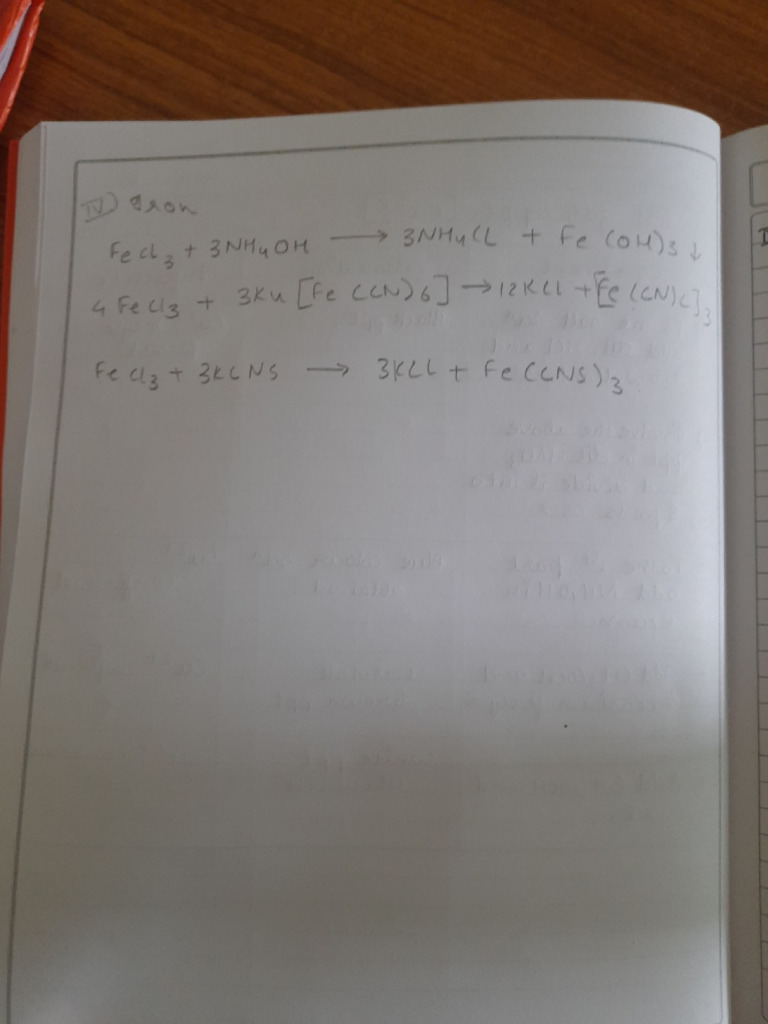 IV) Iron
FeCl3 + 3NH4OH → 3NH4Cl + Fe(OH)3 ↓
4FeCl3 + 3K4[Fe(CN)6] → 12KCl + [Fe(CN)6]3
FeCl3 + 3KCNS → 3KCl + Fe(CNS)3